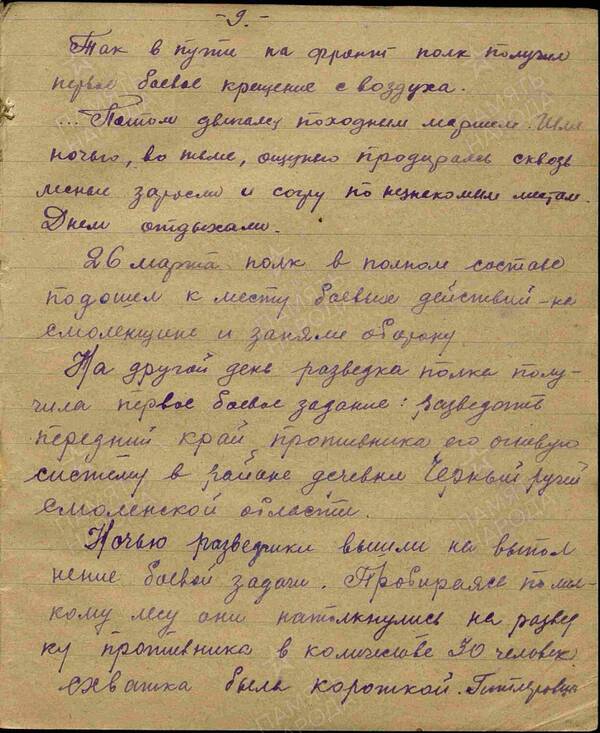 -9.-
Так в пути на фронт полк получил
первое боевое крещение с воздуха.
...Потом двигались походным маршем. Шли
ночью, во тьме, ощупью продираясь сквозь
лесные заросли и согру по незнакомым местам.
Днем отдыхали.
26 марта полк в полном составе
подошел к месту боевых действий - на
смоленщине и заняли оборону
На другой день разведка полка полу-
чила первое боевое задание: разведать
передний край противника его огневую
систему в районе деревни Черный ручей
смоленской области.
Ночью разведчики вышли на выпол
нение боевой задачи. Пробираясь по мел-
кому лесу они натолкнулись на развед
ку противника в количестве 30 человек
схватка была короткой. Гитлеровцы
ПАМЯТЬ НАРОДА